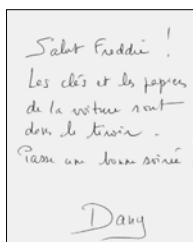 Salut Freddie !
Les clés et les papiers
de la voiture sont
dans le tiroir.
Passe une bonne soirée
Dany